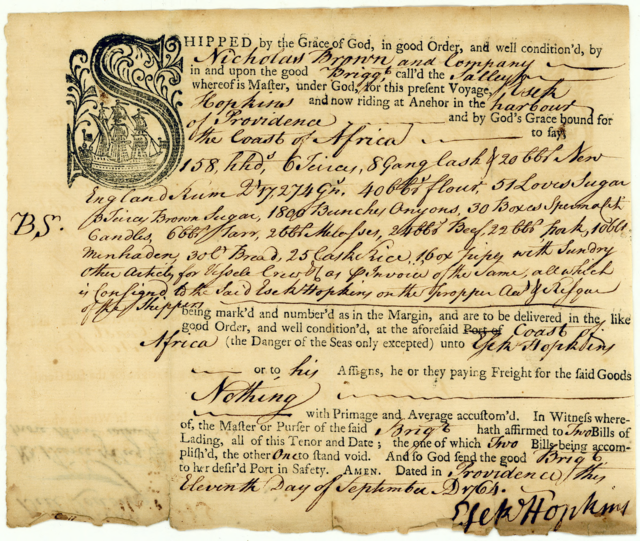 SHIPPED by the Grace of God, in good Order, and well condition'd, by
Nicholas Brown and Company
in and upon the good Brigg.t call'd the Sally
whereof is Master, under God, for this present Voyage, Esek
Hopkins and now riding at Anchor in the harbour
of Providence and by God's Grace bound for
the Coast of Africa to say
158, hhds, 6 Tierces, 8 Gang Cask & 20 bbls New
England Rum Qt 17,274 Gs. 40 bbls flour, 51 Loves Sugar
Brown Sugar, 1800 Bunches Onyons, 30 Boxes
BS.
Candles, 6 bbls Tarr, 2 bbls Molosses, 24 bbls Beef 22 bbls Pork, 10 bbls
Menhaden, 30 Ct Bread, 25 Cask Rice, with Sundry
Other Articles for Vessels Crew & as Invoice of the Same, all which
is Consigned to the Said Esek Hopkins on the Propper & Risque
of the Shippers
being mark'd and number'd as in the Margin, and are to be delivered in the like
good Order, and well condition'd, at the aforesaid Port of Coast of
Africa (the Danger of the Seas only excepted) unto Esek Hopkins
or to his Assigns, he or they paying Freight for the said Goods
Nothing
with Primage and Average accustom'd. In Witness where-
of, the Master or Purser of the said Brigt hath affirmed to Two Bills of
Lading, all of this Tenor and Date; the one of which Two Bills being accom-
plish'd, the other One to stand void. And so God send the good Brigt
to her desir'd Port in Safety. AMEN. Dated in Providence this
Eleventh Day of September AD 1764.
Esek Hopkins